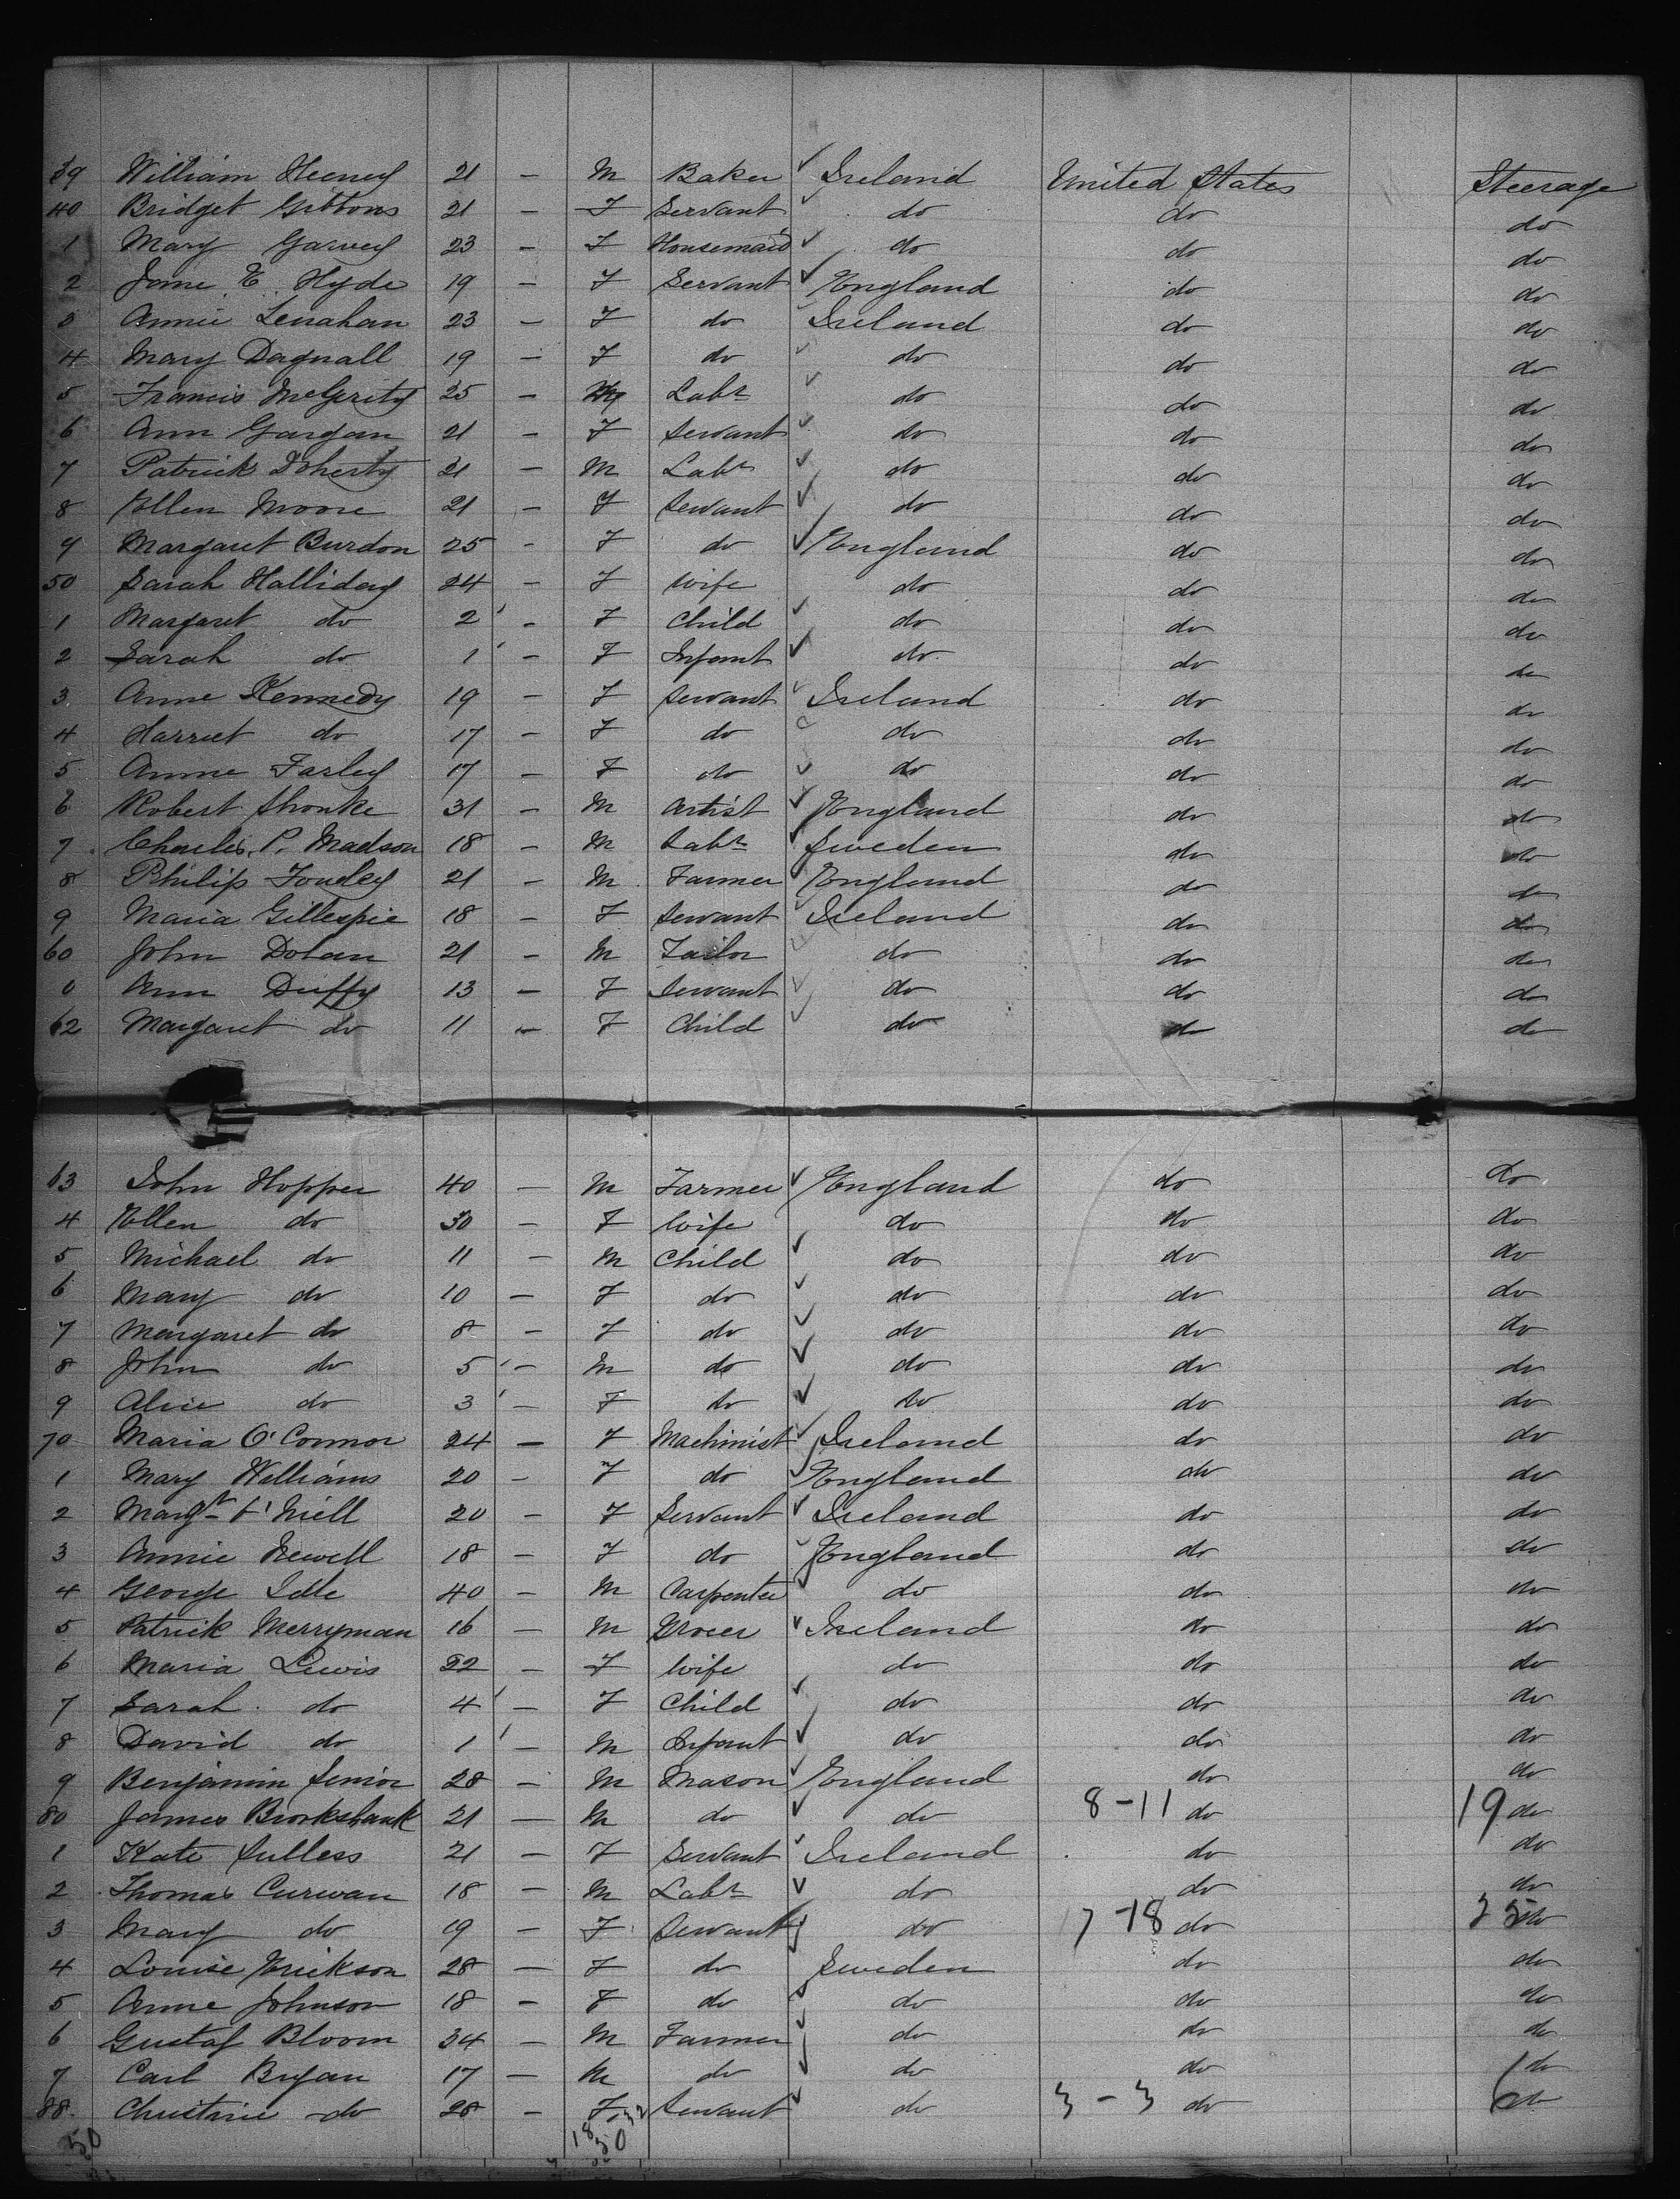 39 William Heeney 21 - M Baker Ireland United States Steerage
40 Bridget Gibbons 21 - F Servant do do do
1 Mary Garvey 23 - F Housemaid do do do
2 Jane E. Hyde 19 - F Servant England do do
3 Annie Lenahan 23 - F do Ireland do do
4 Mary Dagnall 19 - F do do do do
5 Francis McGerity 25 - M Labr do do do
6 Ann Gargan 21 - F Servant do do do
7 Patrick Doherty 21 - M Labr do do do
8 Ellen Moore 21 - F Servant do do do
9 Margaret Burdon 25 - F do England do do
50 Sarah Halliday 24 - F Wife do do do
1 Margaret do 2 - F Child do do do
2 Sarah do 1 - F Infant do do do
3 Anne Kennedy 19 - F Servant Ireland do do
4 Harriet do 17 - F do do do do
5 Anne Farley 17 - F do do do do
6 Robert Shonke 31 - M Artist England do do
7 Charles P. Madson 18 - M Labr Sweden do do
8 Philip 21 - M Farmer England do do
9 Maria Gillespie 18 - F Servant Ireland do do
60 John Dolan 21 - M Tailor do do do
Ann Duffy 13 - F Servant do do do
62 Margaret do 11 - F Child do do do
63 John Hopper 40 - M Farmer England do do
4 Ellen do 30 - F Wife do do do
5 Michael do 11 - M Child do do do
6 Mary do 10 - F do do do do
7 Margaret do 8 - F do do do do
8 John do 5 - M do do do do
9 Alice do 3 - F do do do do
70 Maria O'Connor 24 - F Machinist Ireland do do
1 Mary Williams 20 - F do England do do
2 Margt O'Niell 20 - F Servant Ireland do do
3 Annie Newell 18 - F do England do do
4 George Idle 40 - M Carpenter do do do
5 Patrick Merryman 16 - M Grocer Ireland do do
6 Maria Lewis 22 - F Wife do do do
7 Sarah do 4 - F Child do do do
8 David do 1 - M Infant do do do
9 Benjamin Senior 28 - M Mason England do do
80 James Brooksbank 21 - M do do 8-11 do 19 do
1 Kate Sulless 21 - F Servant Ireland do do
2 Thomas Curwan 18 - M Labr do do do
3 Mary do 19 - F Servant do 17-18 do 35 do
4 Louise Erickson 28 - F do Sweden do do
5 Anne Johnson 18 - F do do do do
6 Gustaf Bloom 34 - M Farmer do do do
7 Carl Bryan 17 - M do do do do
88 Christine do 28 - F Servant do 3-3 do 6 do
50 18 32 50